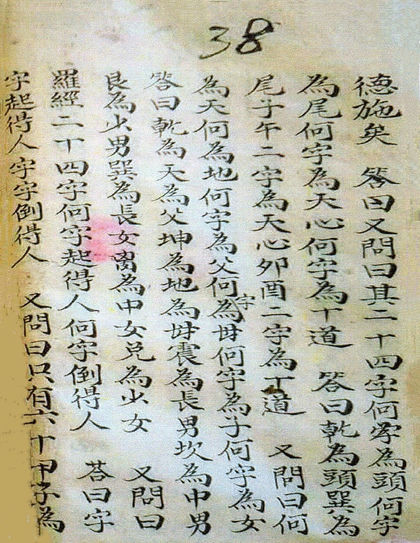 38
德施矣 答曰又問曰其二十四字何字為頭何字
為尾何字為天心何字為丁道 答曰乹為頭巽為
尾子午二字為天心夘酉二字為丁道 又問曰何
為天何為地何字為父何字為毋何字為子何字為女
答曰乹為天為父坤為地為毋震為長男坎為中男
艮為少男巽為長女离為中女兌為少女 又問曰
羅經二十四字何字起得人何字倒得人 答曰字
字起得人字字倒得人 又問曰只有六十甲子為